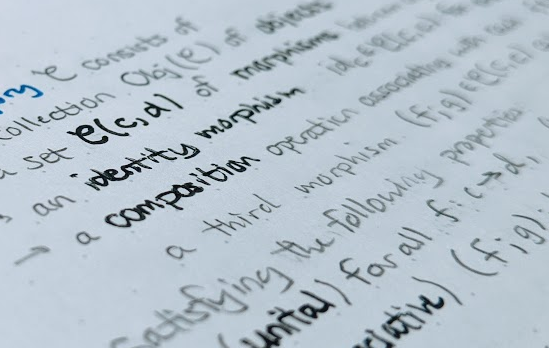 ry C consists of
collection Obj(C) of objects
a set C(c,d) of morphisms between
s an identity morphism id_c ∈ C(c,c) for
→ a composition operation associating with each
a third morphism (f;g) ∈ C(c,e)
Satisfying the following properties
(unital) for all f: c → d,
ciative) (f;g);